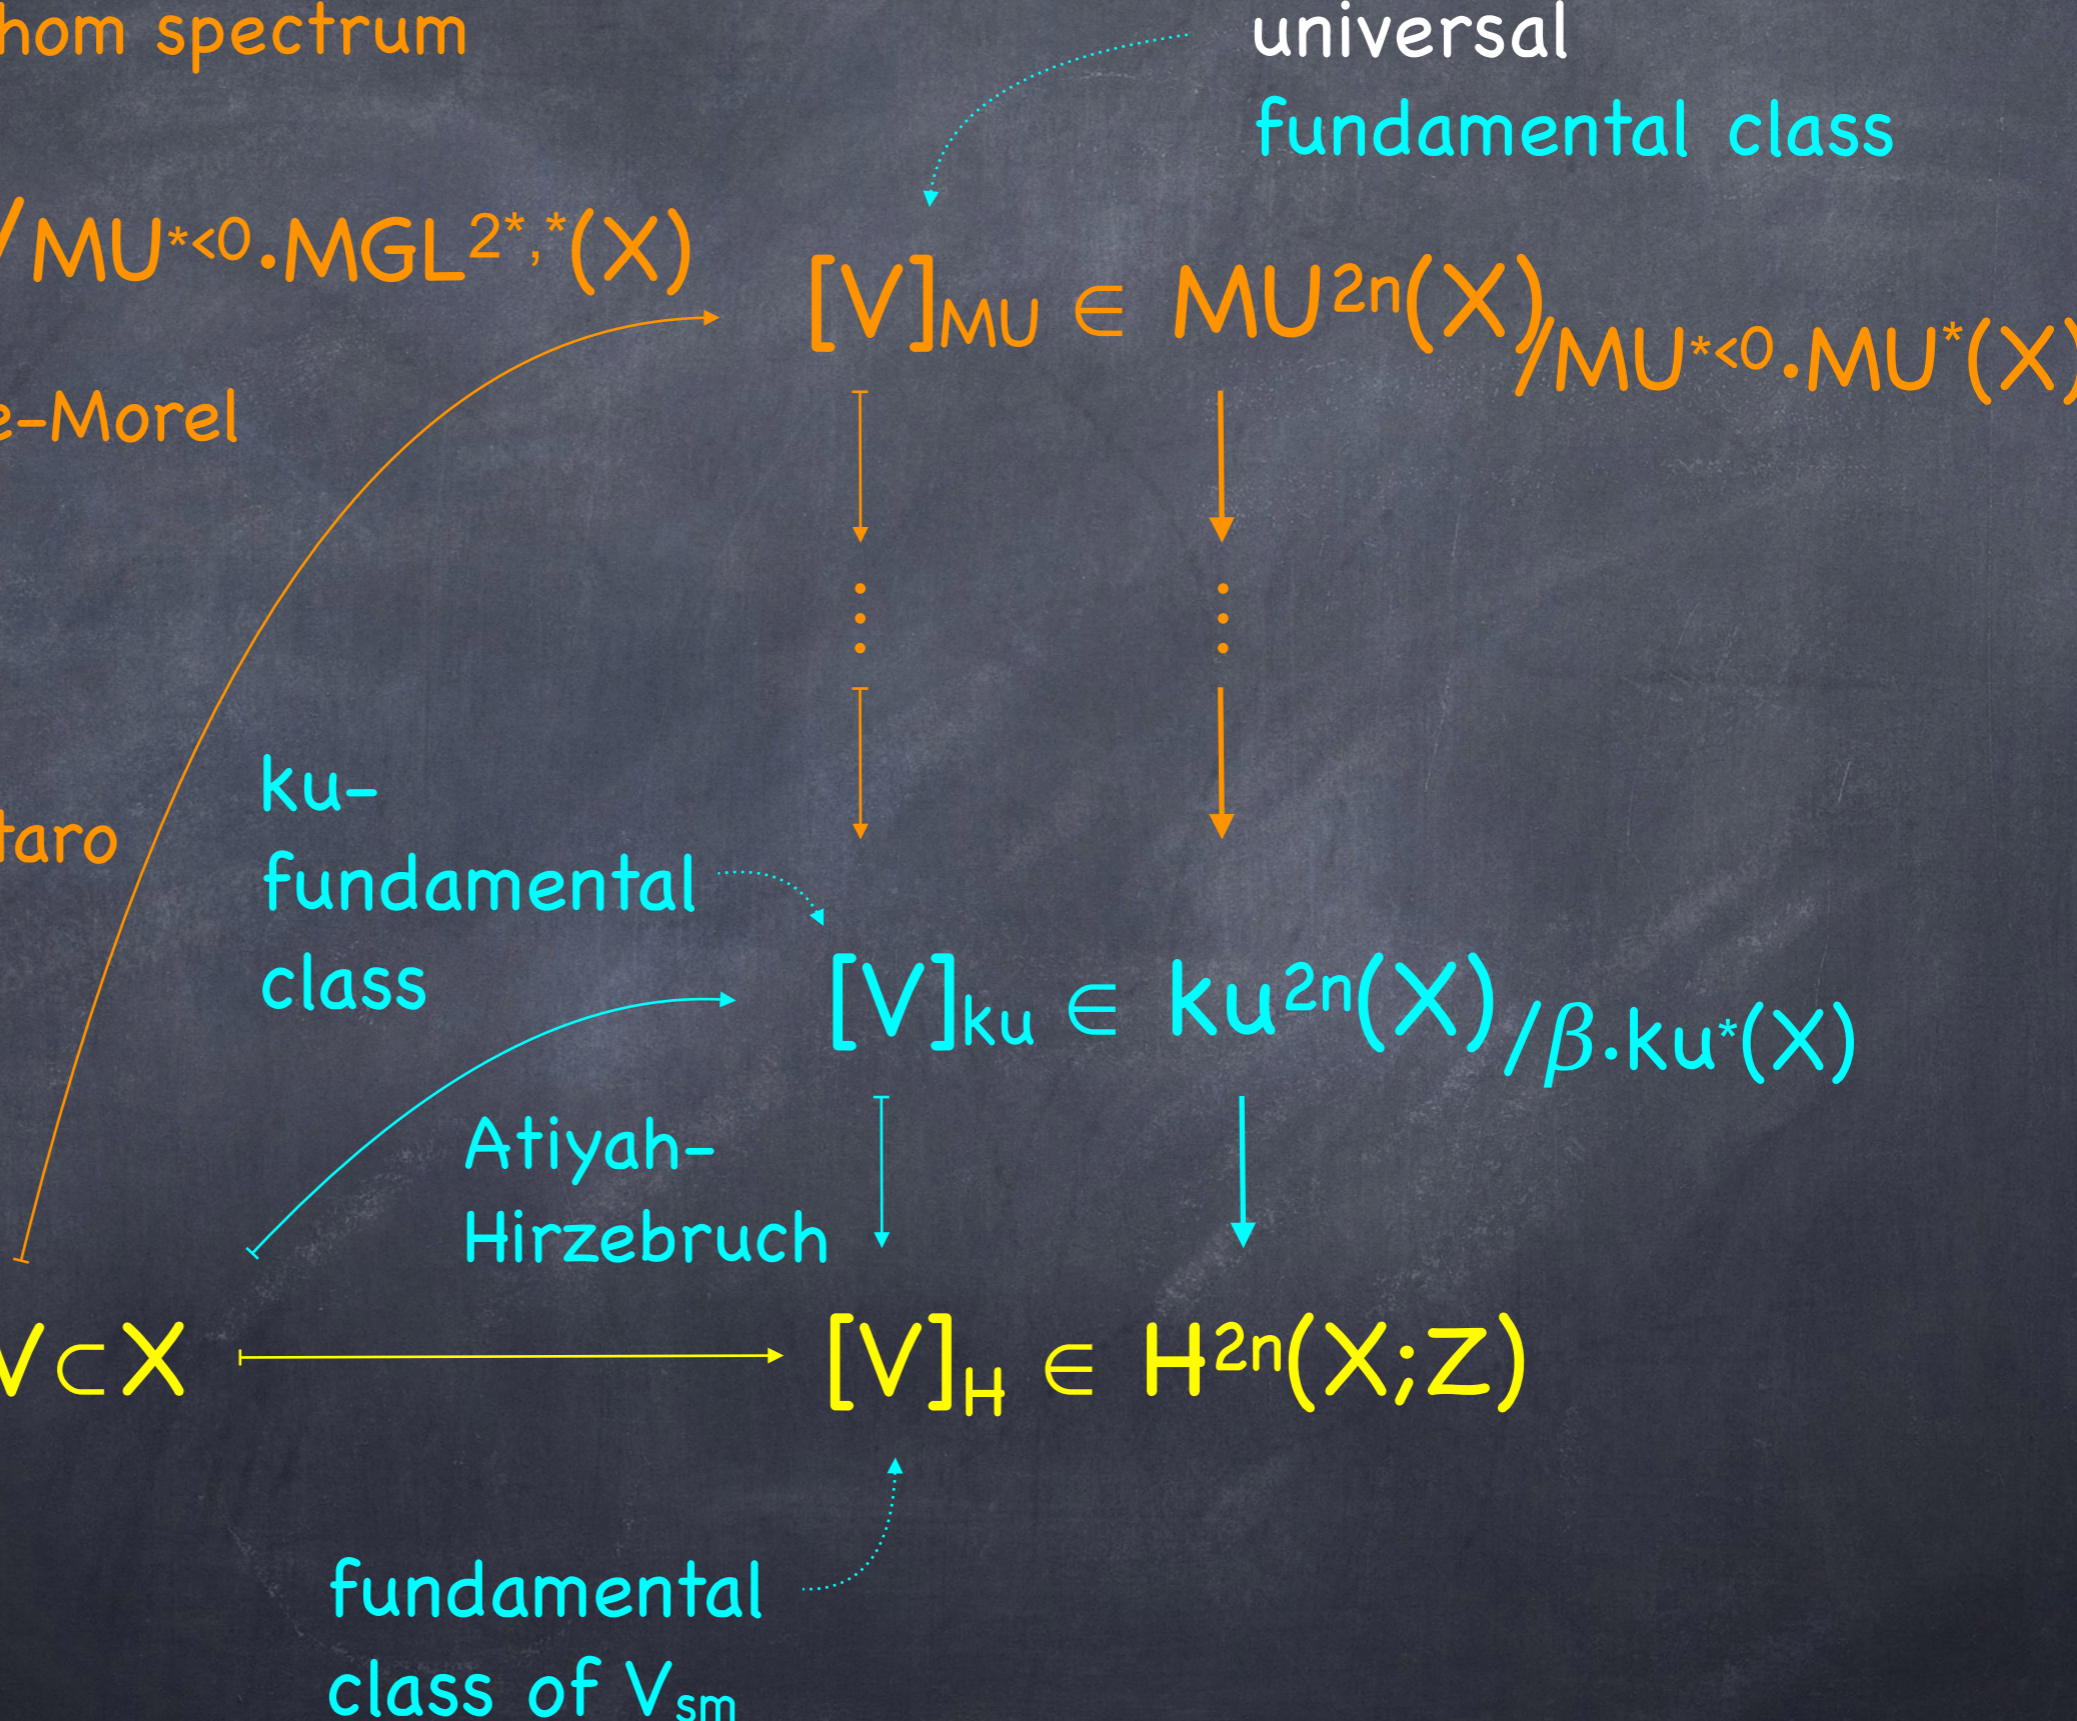 hom spectrum
universal
fundamental class
/MU*<0·MGL2*,*(X)
[V]MU ∈ MU2n(X)/MU*<0·MU*(X)
e-Morel
⋮ ⋮
ku-
taro
fundamental
class
[V]ku ∈ ku2n(X)/β·ku*(X)
Atiyah-
Hirzebruch
V⊂X
[V]H ∈ H2n(X;Z)
fundamental
class of Vsm